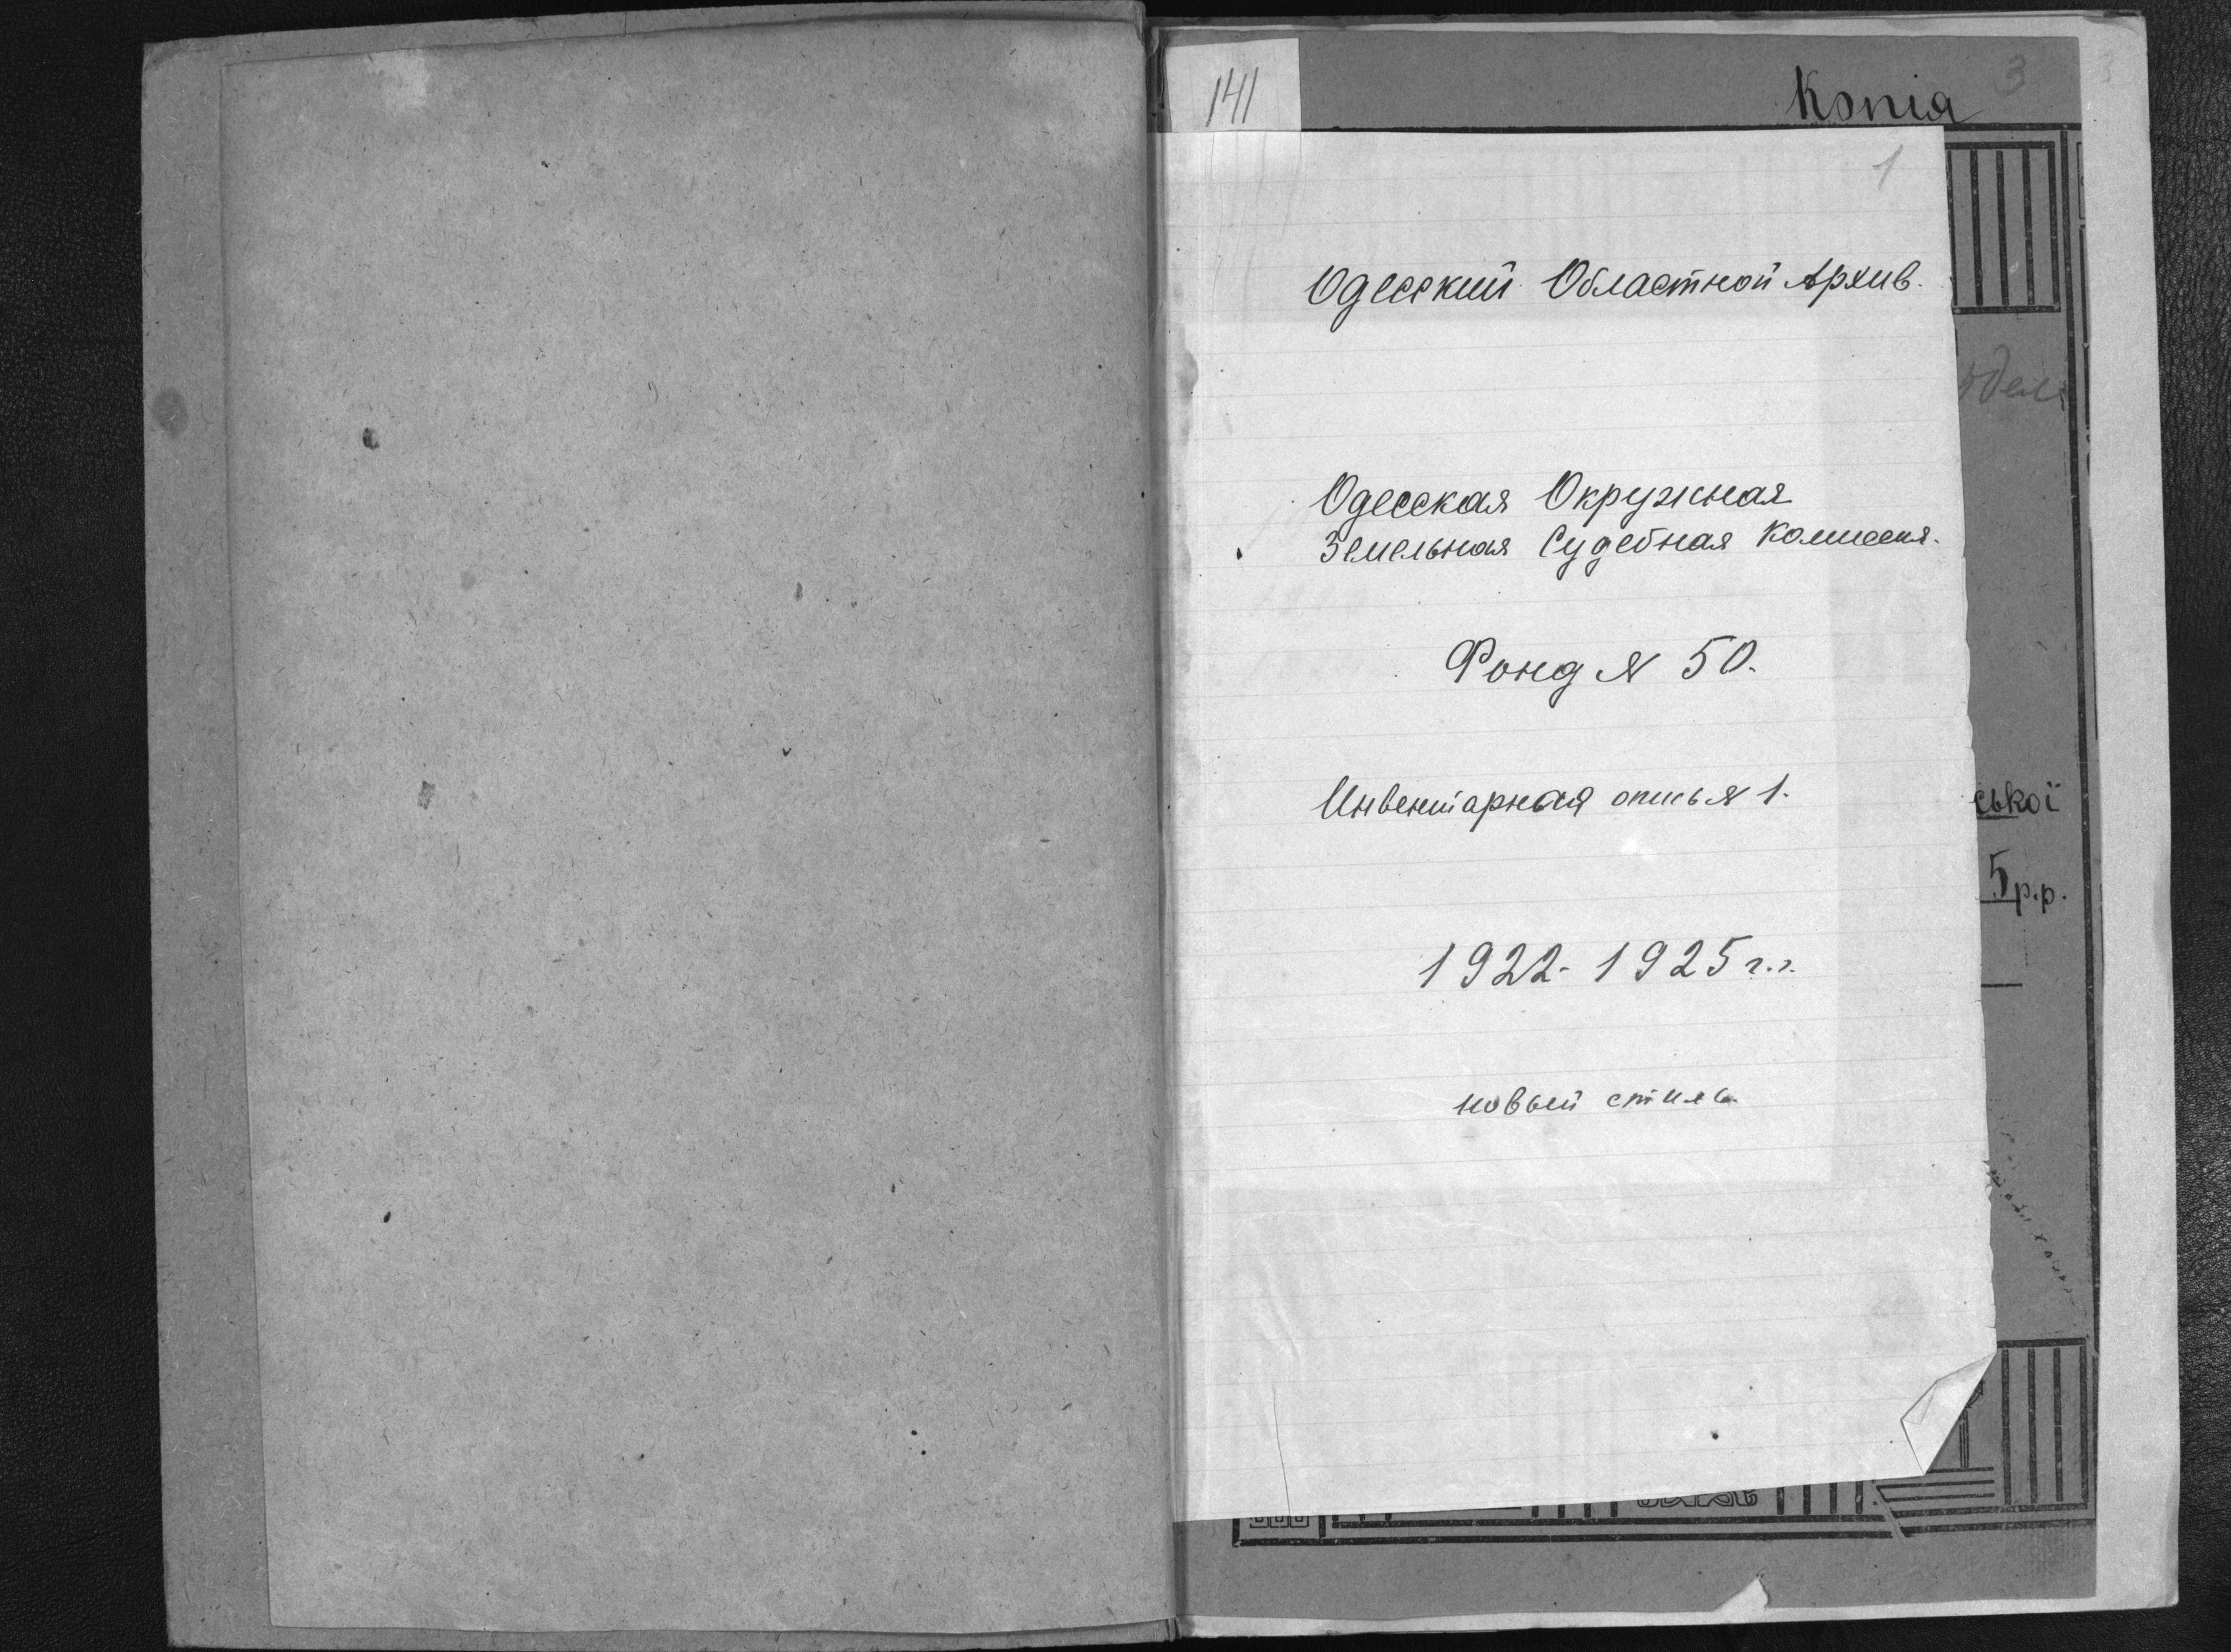 141
Копія
3
1
Одесский Областной Архив.
Одесская Окружная
Земельная Судебная Комиссия.
Фонд N 50.
Инвентарная опись N 1.
ської
5 р.р.
1922-1925 г.г.
новый стиль